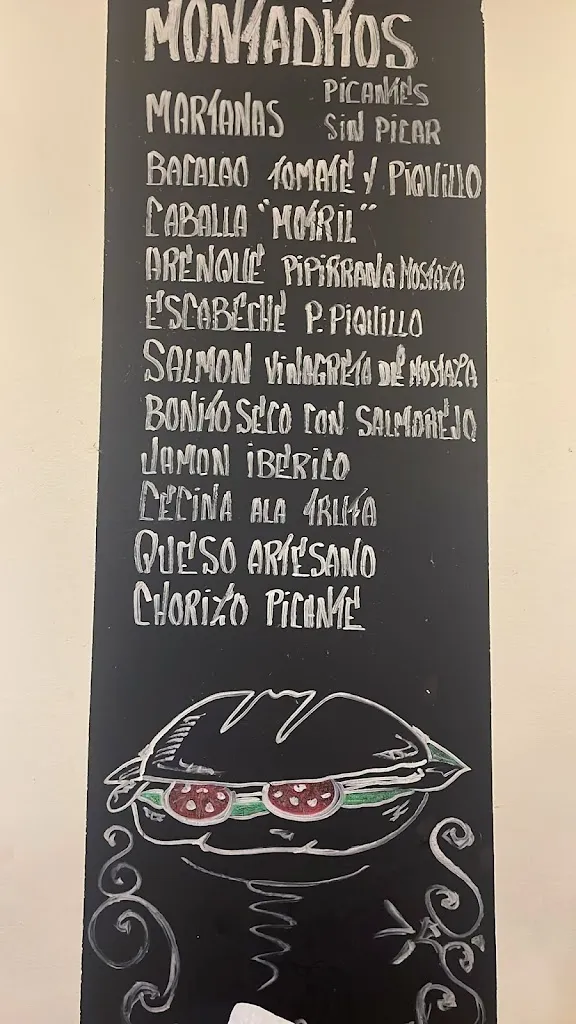 MONTADITOS
MARIANAS PICANTES
SIN PICAR
BACALAO TOMATE Y PIQUILLO
CABALLA "MOTRIL"
ARENQUE PIPIRRANA MOSTAZA
ESCABECHE P. PIQUILLO
SALMON VINAGRETA DE MOSTAZA
BONITO SECO CON SALMOREJO
JAMON IBERICO
CECINA ALA TRUFA
QUESO ARTESANO
CHORIZO PICANTE